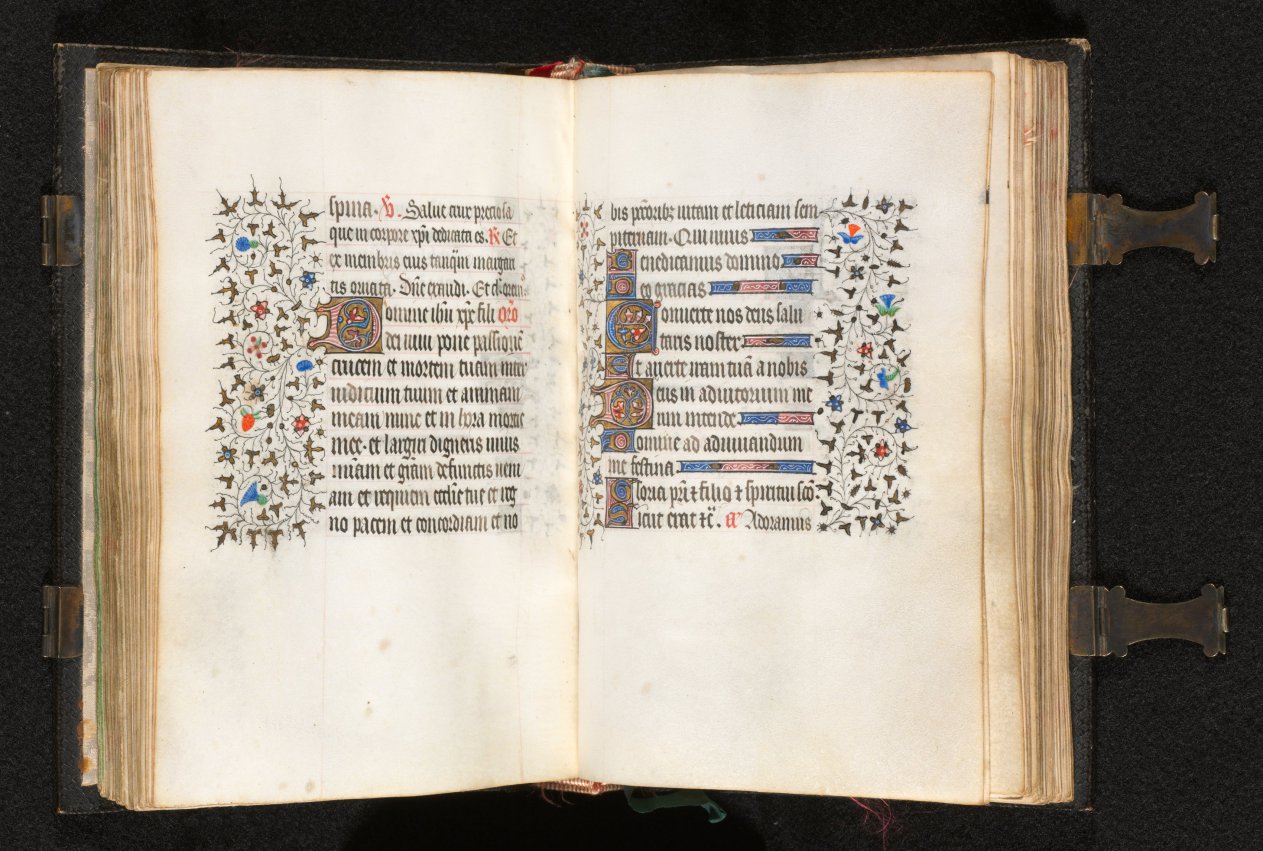 spina. V. Salue crux preciosa
que in corpore xpi dedicata es. R Et
ex membris eius tanq̄m margari
tis ornata. Dn̄e exaudi. Et clamor
Domine ihu xp̄e fili orō
dei uiui pone passionē
crucem et mortem tuam inter
iudicium tuum et animam
meam nunc et in hora mortis
mee. et largiri digneris uiuis
m̄iam et grām defunctis ueni
am et requiem ecclīe tue et reg
no pacem et concordiam et no
bis pctōribꝫ uitam et leticiam sem
piternam. Qui uiuis
Benedicamus domino
Deo gracias
Conuerte nos deus salu
taris noster
Et auerte iram tuā a nobis
Deus in adiutorium me
um intende
Domine ad adiuuandum
me festina
Gloria pr̄i ⁊ filio ⁊ spiritui sc̄o.
Sicut erat ⁊c̄. a Adoramus